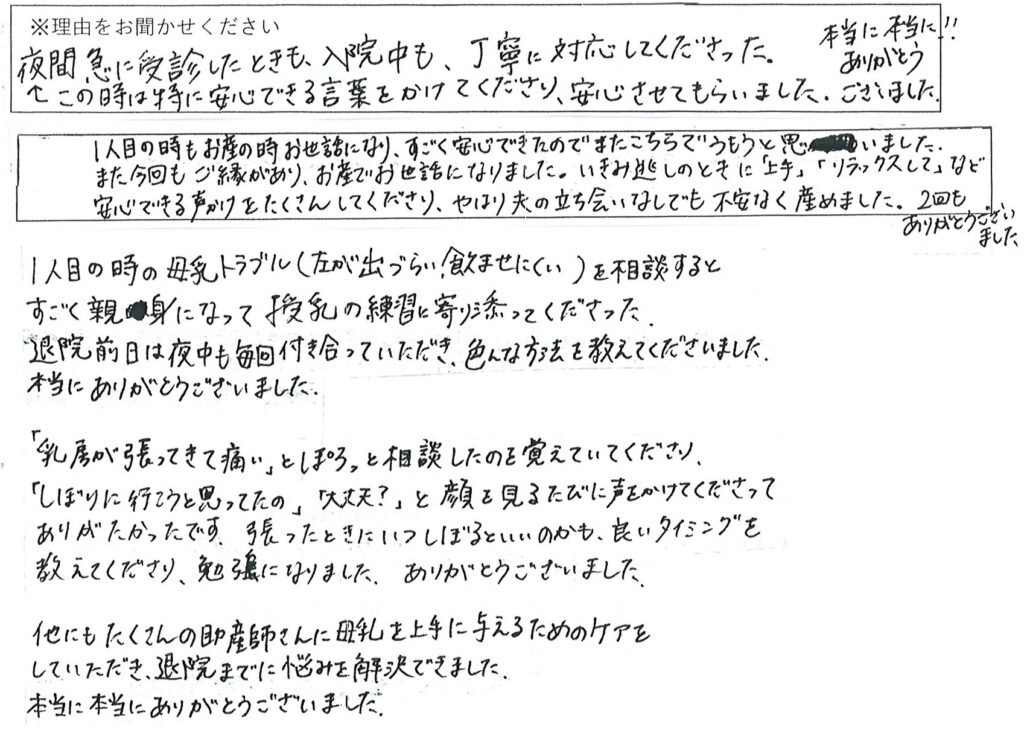 ※理由をお聞かせください
夜間急に受診したときも、入院中も、丁寧に対応してくださった。
↑この時は特に安心できる言葉をかけてくださり、安心させてもらいました。
本当に本当に!!
ありがとう
ございました。
1人目の時もお産の時お世話になり、すごく安心できたのでまたこちらでうもうと思いました。
また今回もご縁があり、お産でお世話になりました。いきみ逃しのときに「上手」「リラックスして」など
安心できる声かけをたくさんしてくださり、やはり夫の立ち会いなしでも不安なく産めました。2回も
ありがとうござい
ました
1人目の時の母乳トラブル(左が出づらい、飲ませにくい)を相談すると
すごく親身になって授乳の練習に寄り添ってくださった。
退院前日は夜中も毎回付き合っていただき、色んな方法を教えてくださいました。
本当にありがとうございました。
「乳房が張ってきて痛い」とぽろっと相談したのを覚えていてくださり、
「しぼりに行こうと思ってたの」「大丈夫?」と顔を見るたびに声をかけてくださって
ありがたかったです。張ったときにいつしぼるといいのかも、良いタイミングを
教えてくださり、勉強になりました。ありがとうございました。
他にもたくさんの助産師さんに母乳を上手に与えるためのケアを
していただき、退院までに悩みを解決できました。
本当に本当にありがとうございました。